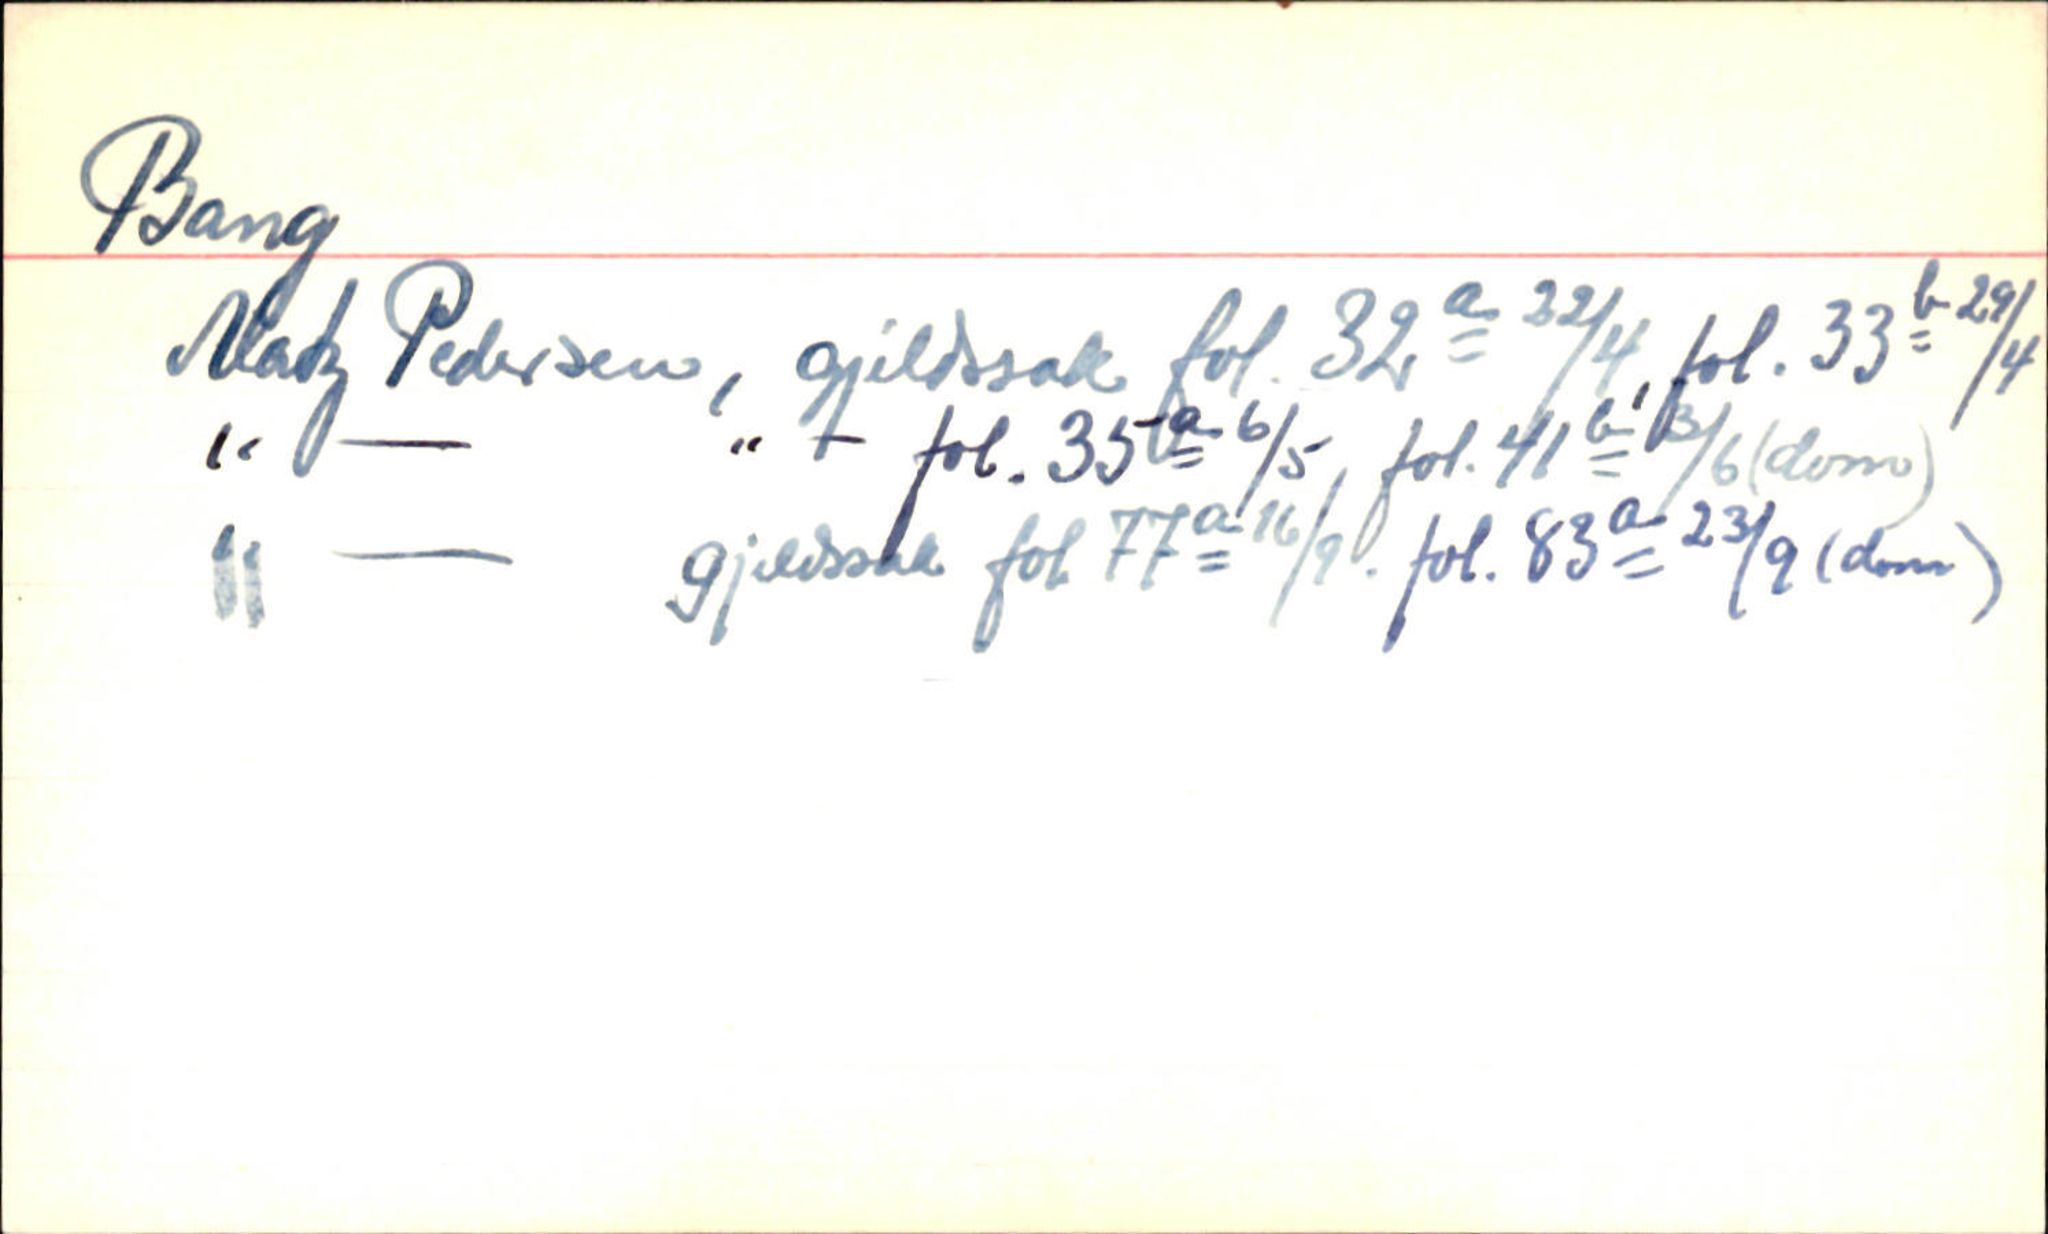 Bang
Matz Pedersen, gjeldssak fol. 32a 22/4, fol. 33b 29/4
" — " — fol. 35a 6/5, fol. 41b 13/6 (dom)
" — gjeldssak fol. 77a 16/9. fol. 83a 23/9 (dom)